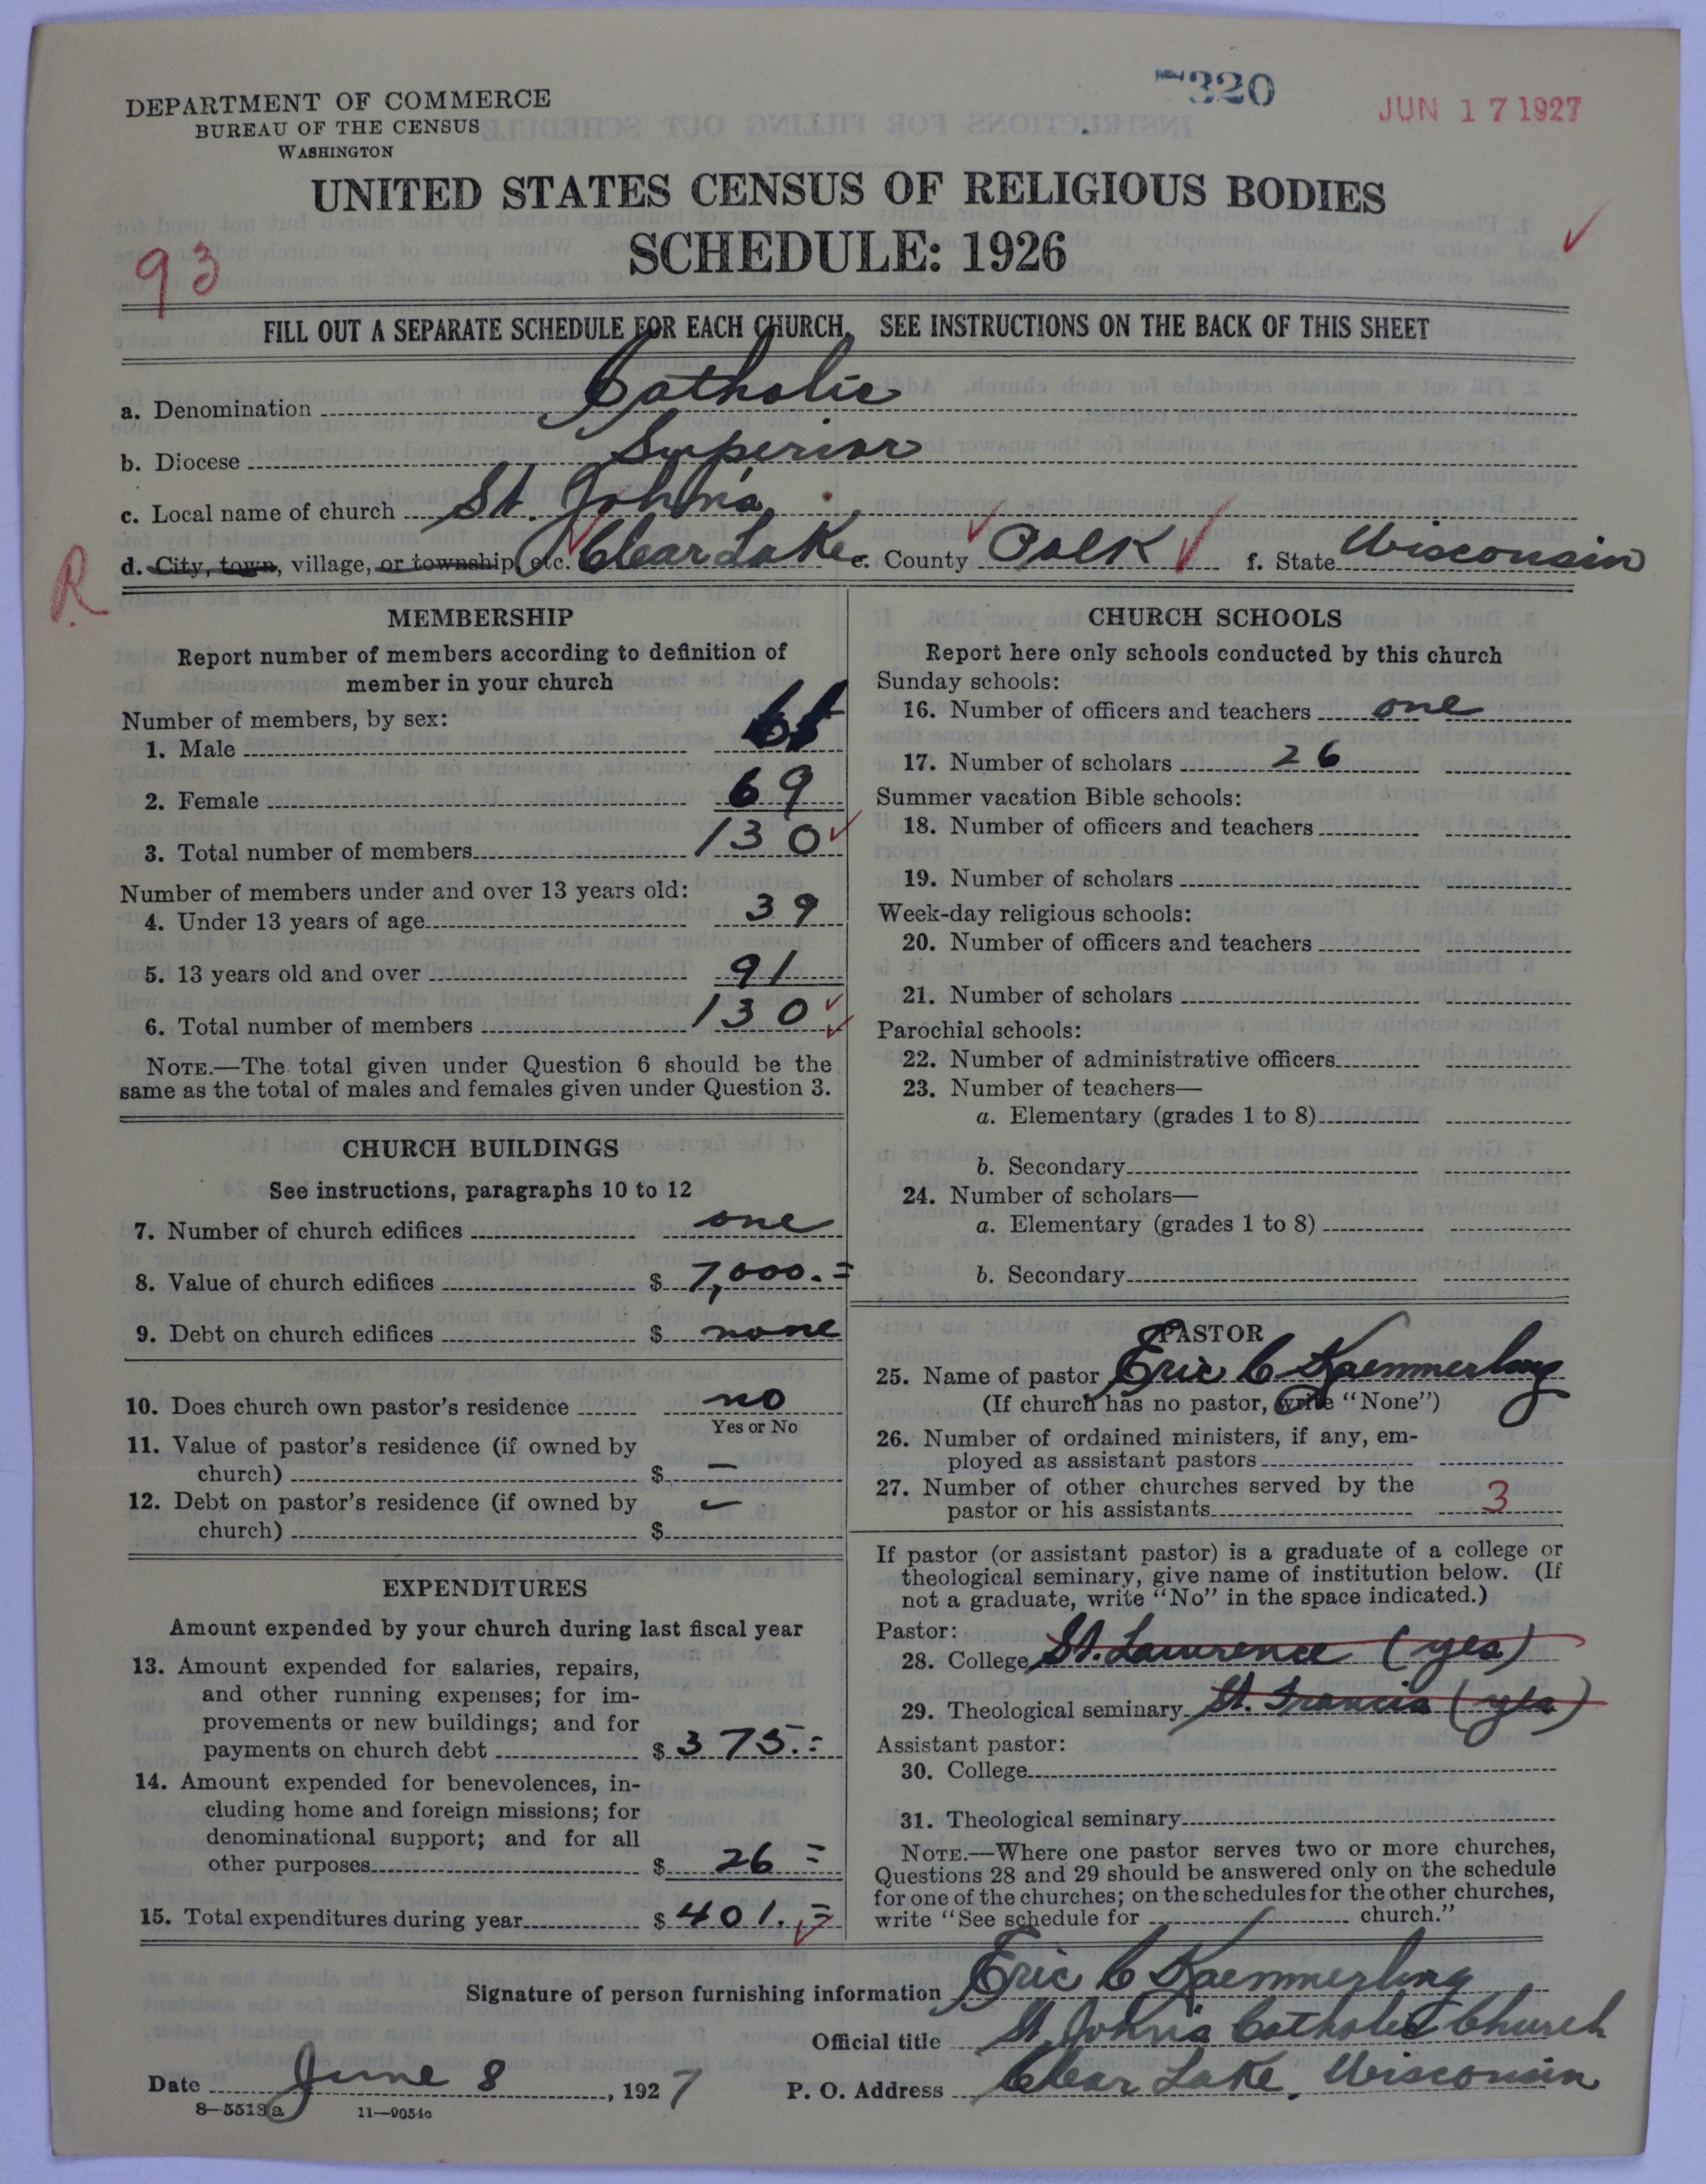 DEPARTMENT OF COMMERCE
BUREAU OF THE CENSUS
WASHINGTON
320
JUN 17 1927
UNITED STATES CENSUS OF RELIGIOUS BODIES
SCHEDULE: 1926
93
FILL OUT A SEPARATE SCHEDULE FOR EACH CHURCH. SEE INSTRUCTIONS ON THE BACK OF THIS SHEET
a. Denomination Catholic
b. Diocese Superior
c. Local name of church St. John's
d. City, town, village, or township, etc. Clear Lake e. County Polk f. State Wisconsin
R
MEMBERSHIP
Report number of members according to definition of
member in your church
Number of members, by sex:
1. Male
2. Female 69
3. Total number of members 130
Number of members under and over 13 years old:
4. Under 13 years of age 39
5. 13 years old and over 91
6. Total number of members 130
NOTE.—The total given under Question 6 should be the
same as the total of males and females given under Question 3.
CHURCH BUILDINGS
See instructions, paragraphs 10 to 12
7. Number of church edifices one
8. Value of church edifices $ 7,000.=
9. Debt on church edifices $ none
10. Does church own pastor's residence no
Yes or No
11. Value of pastor's residence (if owned by
church) $ –
12. Debt on pastor's residence (if owned by –
church) $
EXPENDITURES
Amount expended by your church during last fiscal year
13. Amount expended for salaries, repairs,
and other running expenses; for im-
provements or new buildings; and for
payments on church debt $ 375.=
14. Amount expended for benevolences, in-
cluding home and foreign missions; for
denominational support; and for all
other purposes $ 26 =
15. Total expenditures during year $ 401.=
CHURCH SCHOOLS
Report here only schools conducted by this church
Sunday schools:
16. Number of officers and teachers one
17. Number of scholars 26
Summer vacation Bible schools:
18. Number of officers and teachers
19. Number of scholars
Week-day religious schools:
20. Number of officers and teachers
21. Number of scholars
Parochial schools:
22. Number of administrative officers
23. Number of teachers—
a. Elementary (grades 1 to 8)
b. Secondary
24. Number of scholars—
a. Elementary (grades 1 to 8)
b. Secondary
PASTOR
25. Name of pastor Eric C Kaemmerling
(If church has no pastor, write "None")
26. Number of ordained ministers, if any, em-
ployed as assistant pastors
27. Number of other churches served by the
pastor or his assistants 3
If pastor (or assistant pastor) is a graduate of a college or
theological seminary, give name of institution below. (If
not a graduate, write "No" in the space indicated.)
Pastor:
28. College St. Lawrence (yes)
29. Theological seminary St. Francis (yes)
Assistant pastor:
30. College
31. Theological seminary
NOTE.—Where one pastor serves two or more churches,
Questions 28 and 29 should be answered only on the schedule
for one of the churches; on the schedules for the other churches,
write "See schedule for church."
Signature of person furnishing information Eric C Kaemmerling
Official title St. John's Catholic Church
Date June 8, 1927 P. O. Address Clear Lake, Wisconsin
8—5513a 11—9054c